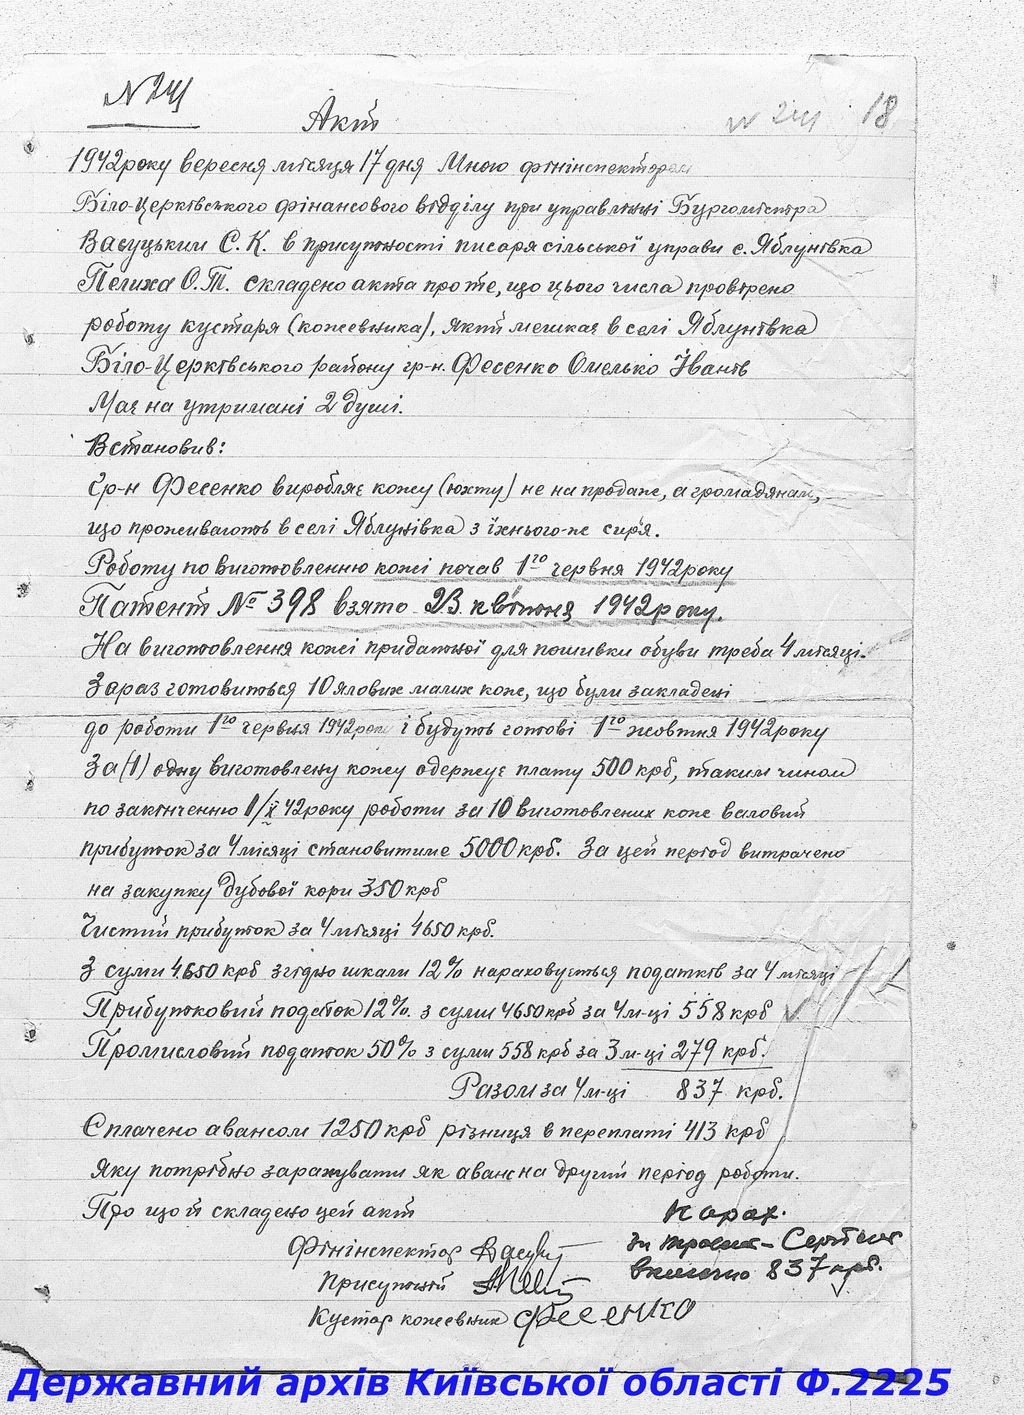 N 241
Акт
18
1942 року вересня місяця 17 дня Мною фінінспектором
Біло-Церківського фінансового відділу при управлінні Бургомістра
Васуцьким С. К. в присутності писаря сільської управи с. Яблунівка
Пелиха О. Т. складено акта про те, що цього числа провірено
роботу кустаря (кожевника), який мешкає в селі Яблунівка
Біло-Церківського району гр-н. Фесенко Омелько Іванів
Має на утримані 2 душі.
Встановив:
Гр-н Фесенко виробляє кожу (юхту) не на продаж, а громадянам,
що проживають в селі Яблунівка з їхнього-же сиря.
Роботу по виготовленню кожі почав 1го червня 1942 року
Патент № 398 взято 23 квітня 1942 року.
На виготовлення кожі придатної для пошивки обуви треба 4 місяці.
Зараз готовиться 10 ялових малих кож, що були закладені
до роботи 1го червня 1942 року і будуть готові 1го жовтня 1942 року
За (1) одну виготовлену кожу одержує плату 500 крб, таким чином
по закінченню 1/X 42 року роботи за 10 виготовлених кож валовий
прибуток за 4 місяці становитиме 5000 крб. За цей період витрачено
на закупку дубової кори 350 крб
Чистий прибуток за 4 місяці 4650 крб.
З суми 4650 крб згідно шкали 12% нараховується податків за 4 місяці
Прибутковий податок 12% з суми 4650 крб за 4 м-ці 558 крб
Промисловий податок 50% з суми 558 крб за 3 м-ці 279 крб.
Разом за 4 м-ці 837 крб.
Сплачено авансом 1250 крб різниця в переплаті 413 крб
Яку потрібно зарахувати як аванс на другий період роботи.
Про що й складено цей акт
Нарах.
Фінінспектор Васуц
включно 837 крб.
Присутній
Кустар кожевник Фесенко
Державний архів Київської області Ф.2225